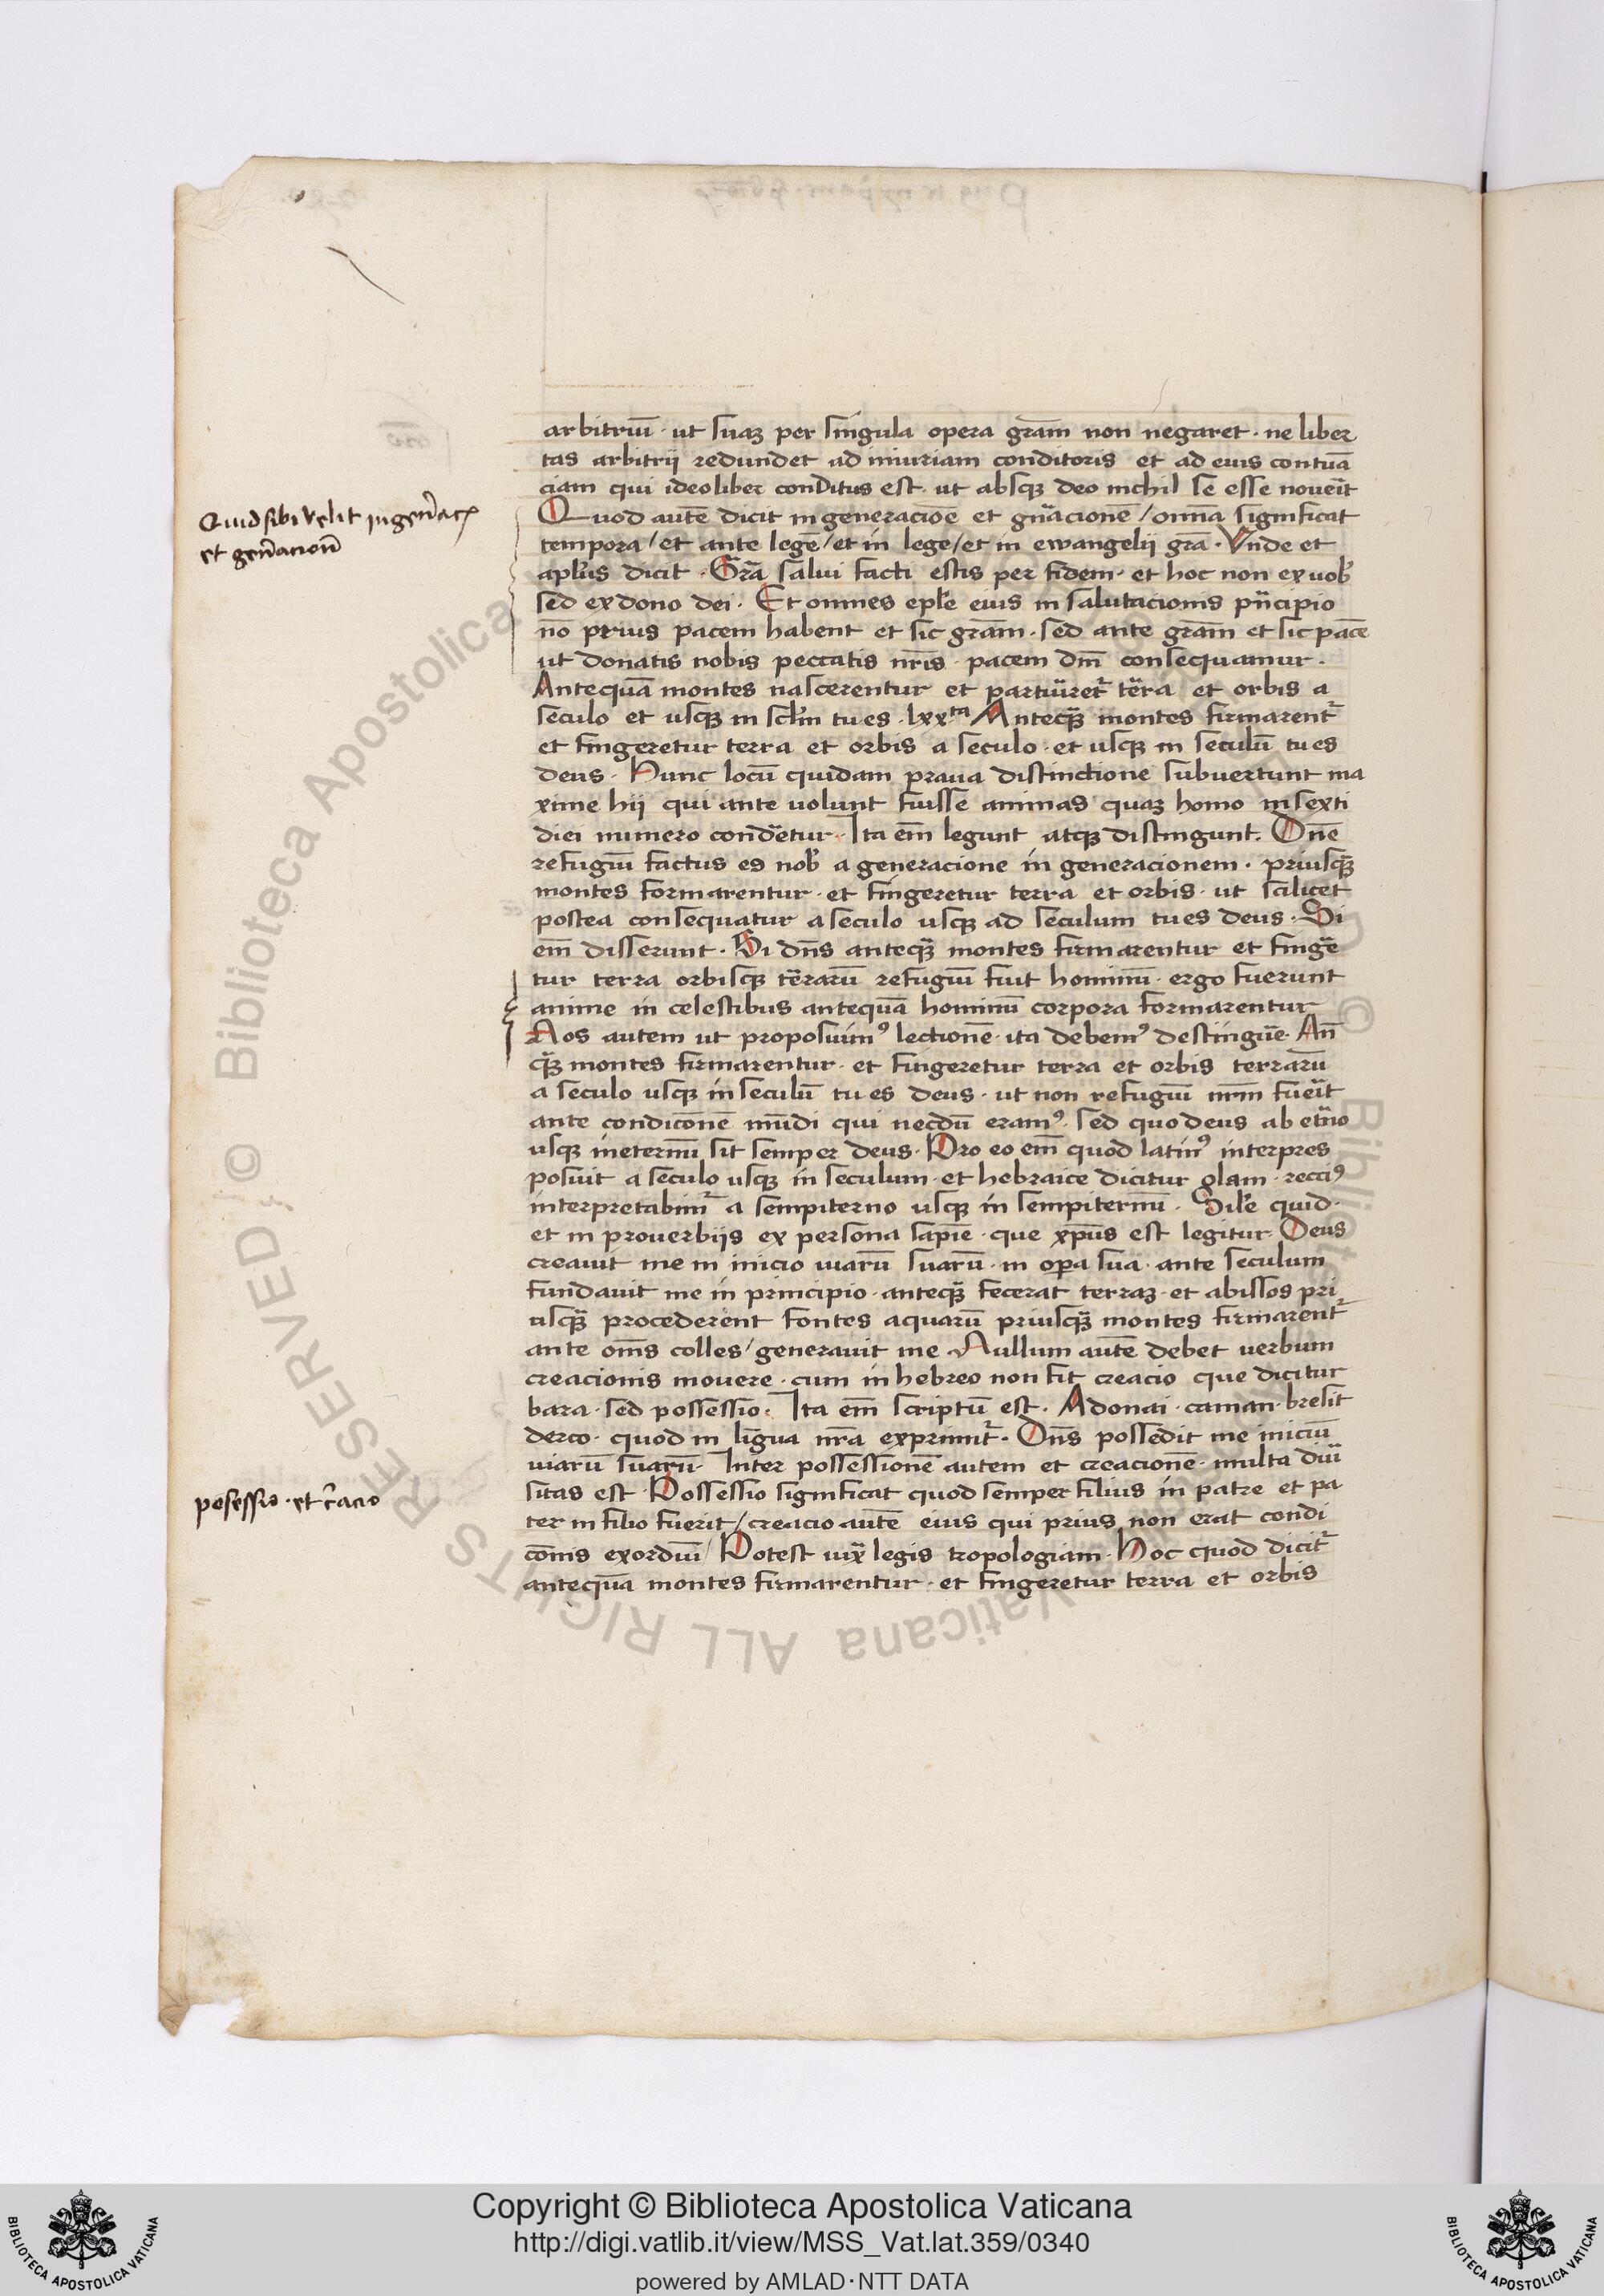 arbitriũ · ut suaȝ per singula opera gr̃am non negaret · ne liber
tas arbitrij redundet ad iniuriam conditoris et ad eius contũa
ciam qui ideo liber conditus est · ut absqȝ deo nichil se esse nouẽit
Quod autẽ dicit in generaciõe et gñacionẽ / om̃a significat
tempora / et ante legẽ / et in lege / et in ewangelij gr̃a · Vnde et
apl̃us dicit · Gr̃a salui facti estis per fidem · et hoc non ex uob̃
sed ex dono dei · Et omnes epl̃e eius in salutacionis pñcipio
nõ prius pacem habent et sic gr̃am · sed ante gr̃am et sic pacẽ
ut donatis nobis peccatis nr̃is · pacem dñi consequamur ·
Antequã montes nascerentur et partũret᷑ tẽra et orbis a
seculo et usqȝ in scl̃m tu es · lxxᵗᵃ Antequã montes firmarent᷑
et fingeretur terra et orbis a seculo · et usqȝ in seculũ tu es
deus · Hunc locũ quidam praua distinctione subuertunt ma
xime hij qui ante uolunt fuisse animas quaȝ homo in sexti
diei numero condẽtur · Ita em̃ legunt atqȝ distingunt · Dñe
refugiũ factus es nob̃ a generacione in generacionem · priusq̃ȝ
montes formarentur · et fingeretur terra et orbis · ut scilicet
postea consequatur a seculo usqȝ ad seculum tu es deus · Si
em̃ disserunt · Si dñs anteq̃ȝ montes firmarentur et fingẽ
tur terra orbisqȝ tẽrarũ refugiũ fuit hominũ · ergo fuerunt
anime in celestibus antequã hominũ corpora formarentur
Nos autem ut proposuim⁹ lectionẽ · ita debem⁹ destingũe · An̄
q̃ȝ montes firmarentur · et fingeretur terra et orbis terrarũ
a seculo usqȝ in seculũ tu es deus · ut non refugiũ nr̃m fuẽit
ante condicõnẽ mũdi qui necdũ eram⁹ · sed quo deus ab et̃no
usqȝ in eternũ sit semper deus · Pro eo em̃ quod latin⁹ interpres
posuit a seculo usqȝ in seculum · et hebraice dicitur olam · recci⁹
interpretabim᷑ a sempiterno usqȝ in sempiternũ · Sil̃e quid ·
et in prouerbijs ex persona sapiẽ · que xp̃us est legitur · Deus
creauit me in inicio uiarũ suarũ · in op̃a sua · ante seculum
fundauit me in principio · anteq̃ȝ fecerat terraȝ · et abissos pri
usq̃ȝ procederent fontes aquarũ priusq̃ȝ montes firmarent᷑
ante om̃s colles / generauit me Nullum autẽ debet uerbum
creacionis mouere · cum in hebreo non sit creacio que dicitur
bara · sed possessio · Ita em̃ scriptũ est · Adonai · canan · bresit
derco · quod in lĩgua nr̃a exprimit᷑ · Dñs possedit me iniciũ
uiarũ suarũ · Inter possessionẽ autem et creacionẽ · multa diũ
sitas est · Possessio significat quod semper filius in patre et pa
ter in filio fuerit / creacio autẽ eius qui prius non erat condi
cõnis exordiũ / Potest iux̃ legis tropologiam · Hoc quod dicit᷑
anteqũa montes firmarentur · et fingeretur terra et orbis
Quid sibi velit in gen̄ac̃
et gen̄acionẽ
posessio · et c̃acio
© Biblioteca Apostolica Vaticana ALL RIGHTS RESERVED
Copyright © Biblioteca Apostolica Vaticana
http://digi.vatlib.it/view/MSS_Vat.lat.359/0340
powered by AMLAD·NTT DATA
BIBLIOTECA APOSTOLICA VATICANA
BIBLIOTECA APOSTOLICA VATICANA